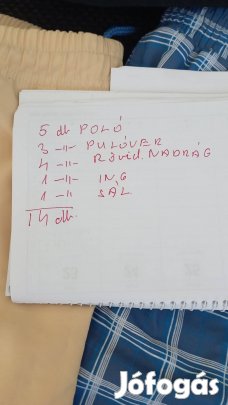 5 db POLÓ
3 -"- PULÓVER
4 -"- Rövid. NADRÁG
1 -"- ING
1 -"- SÁL
14 db.
Jófogás